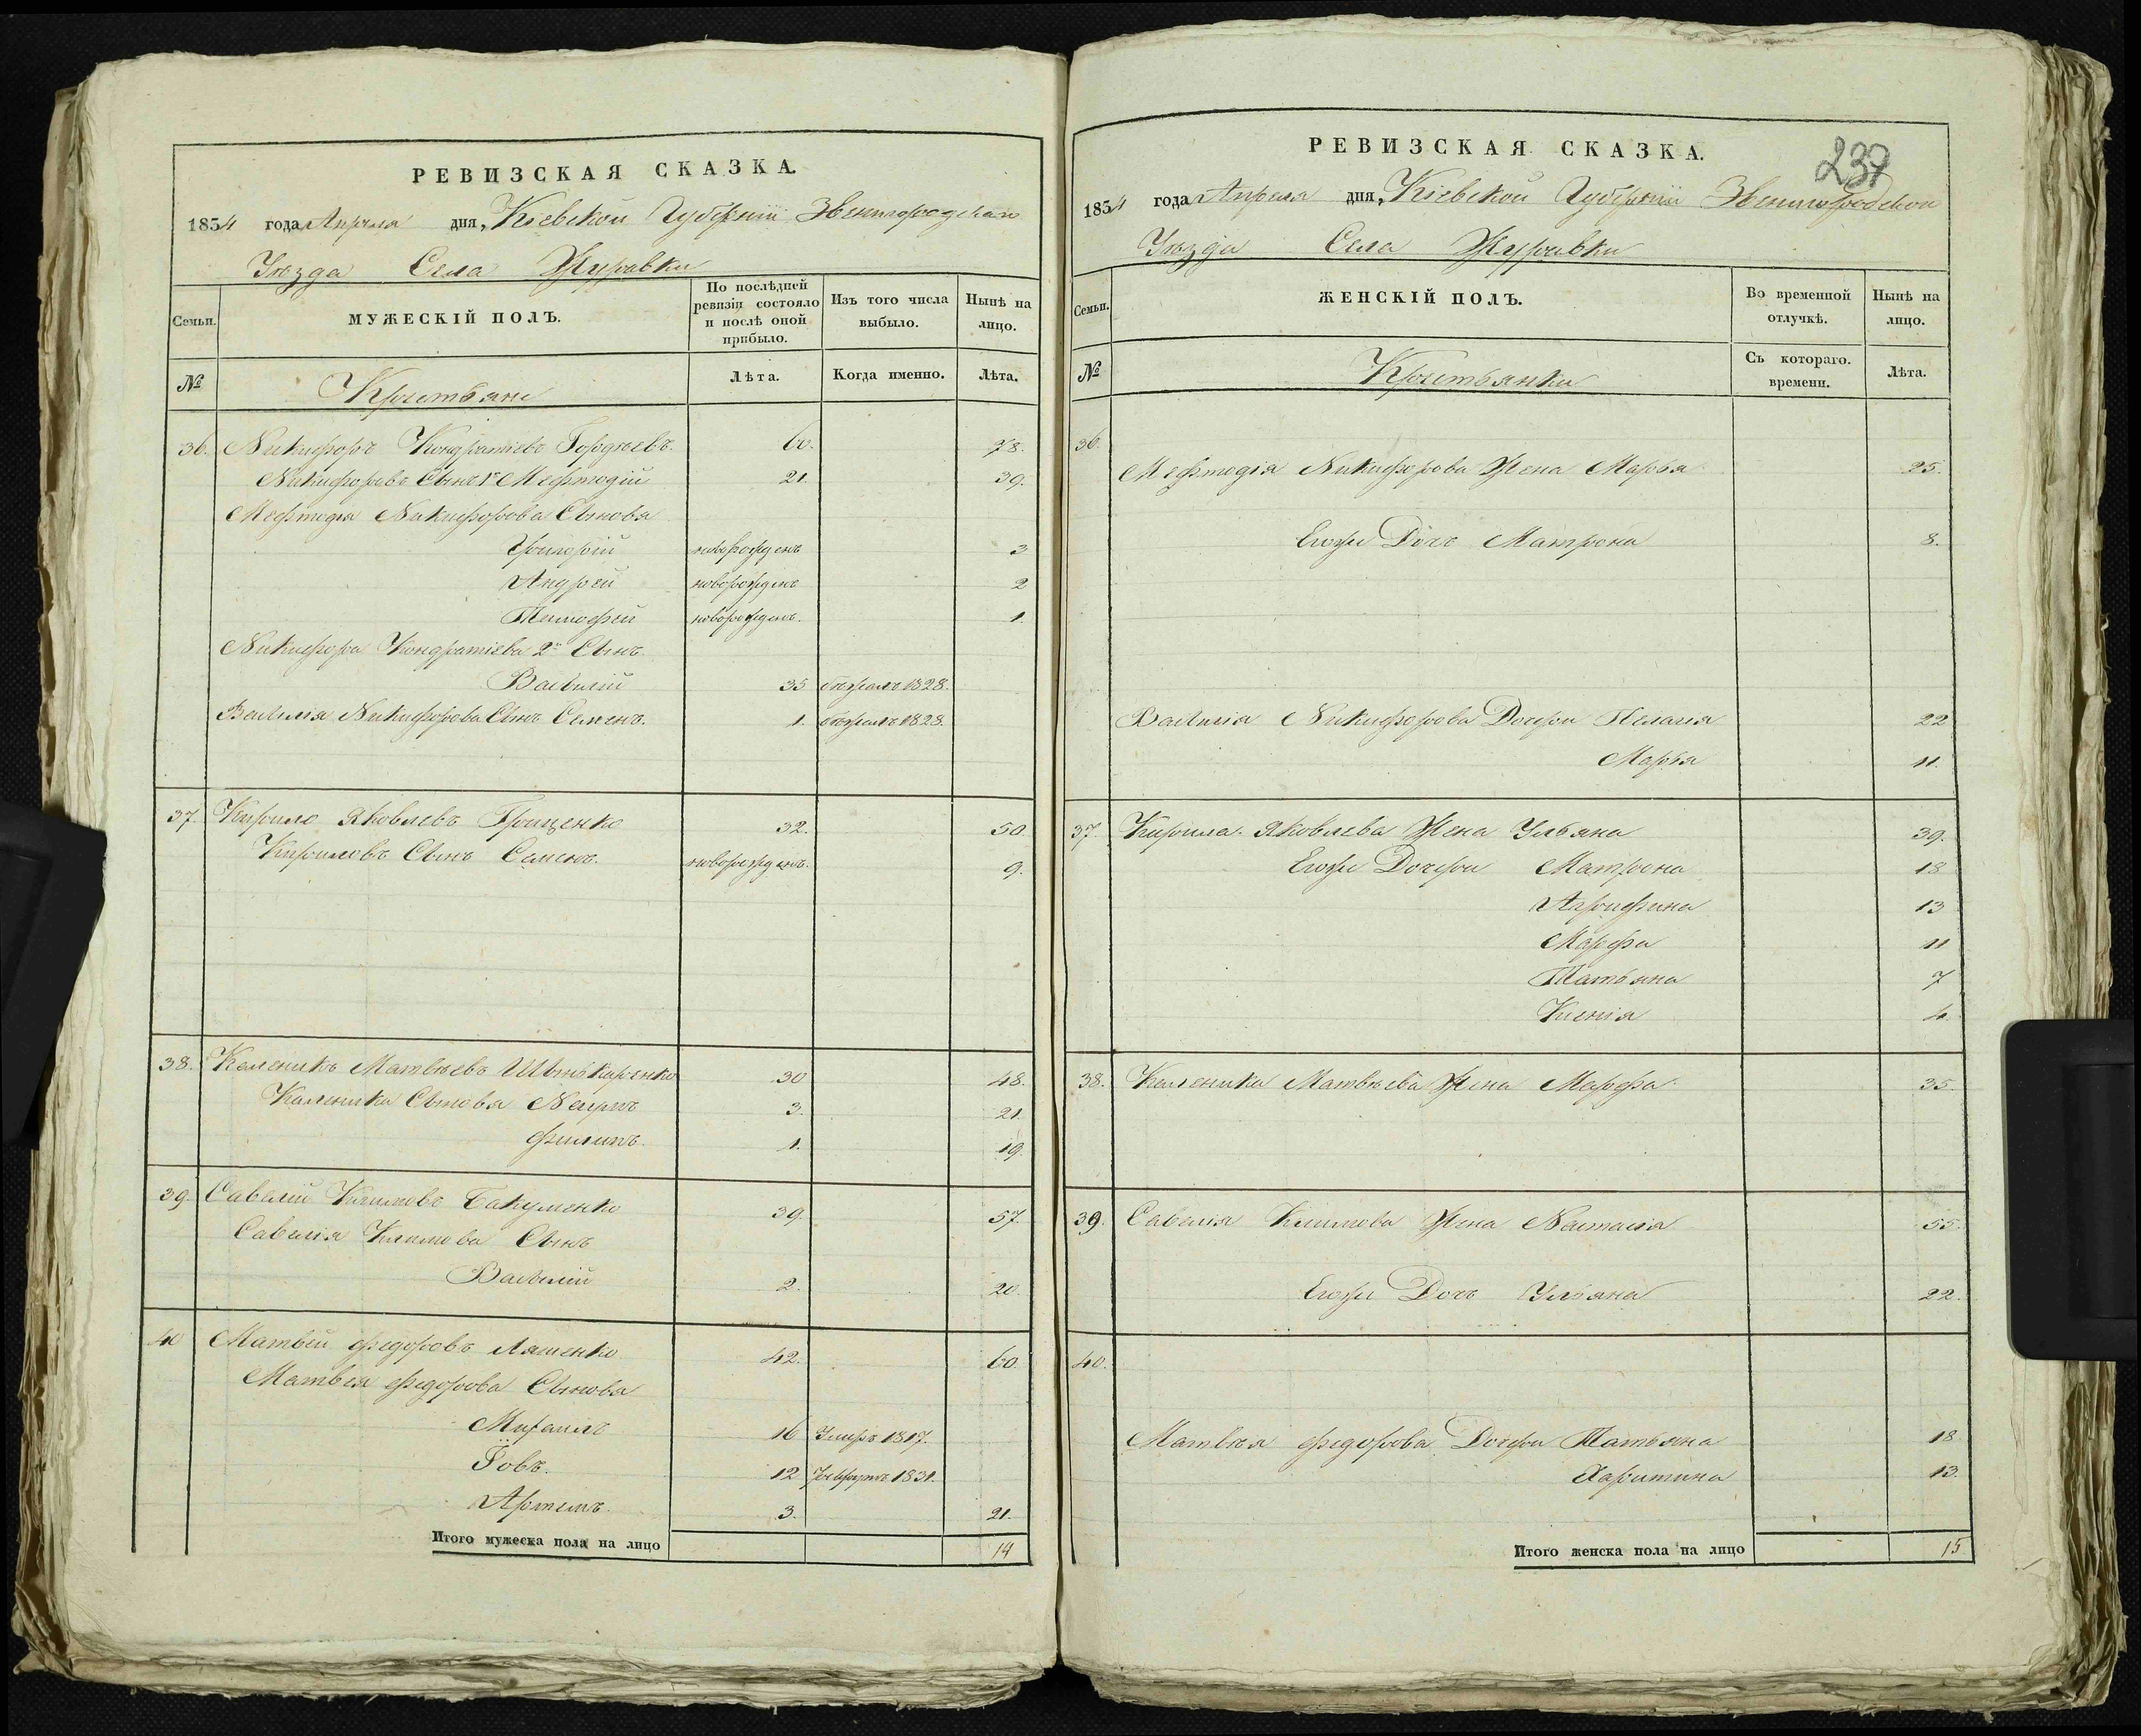 РЕВИЗСКАЯ СКАЗКА.
1834 года Апреля дня, Кіевской Губерніи Звенигородскаго
Уѣзда Села Журавки
Семьи.
МУЖЕСКІЙ ПОЛЪ.
По послѣдней ревизіи состояло и послѣ оной прибыло.
Изъ того числа выбыло.
Нынѣ на лицо.
№
Крестьяне
Лѣта.
Когда именно.
Лѣта.
36. Никифоръ Кондратіевъ Гордѣевъ. 60. 78.
Никифоровъ Сынъ 1й Мефтодій 21. 39.
Мефтодія Никифорова Сыновя
Григорій новорожденъ 3
Андрей новорожденъ 2
Тимофей новорожденъ. 1.
Никифора Кондратіева 2й Сынъ
Василій 35 бѣжалъ 1828.
Василія Никифорова Сынъ Семенъ. 1. бѣжалъ 1828
37. Кирило Яковлевъ Грищенко 32. 50.
Кириловъ Сынъ Семенъ. новорожденъ. 9.
38. Каленикъ Матвѣевъ 30 48.
Каленика Сыновя 3. 21.
Филипъ. 1. 19.
39. Савелій Климовъ Бакуменко 39. 57.
Савелія Климова Сынъ
Василій 2. 20.
40 Матвѣй Федоровъ Ляшенко 42. 60.
Матвѣя Федорова Сыновя
Михаилъ 16 Умеръ 1817.
Іовъ. 12 1831.
Артемъ. 3. 21.
Итого мужеска пола на лицо 14
РЕВИЗСКАЯ СКАЗКА.
237
1834 года Апреля дня, Кіевской Губерніи Звенигородской
Уѣзда Села Журавки
Семьи.
ЖЕНСКІЙ ПОЛЪ.
Во временной отлучкѣ.
Нынѣ на лицо.
№
Крестьянки
Съ котораго. времени.
Лѣта.
36.
Мефтодія Никифорова Жена Марья 25.
Егоже Дочь Матрона 8.
Василія Никифорова Дочери Пелагія 22
Марья 11.
37. Кирила Яковлева Жена Ульяна 39.
Егоже Дочери Матрона 18
Агрифина 13
Марфа 11
Татьяна 7
Ксенія 4.
38. Каленика Матвѣева Жена Марфа. 35.
39. Савелія Климова Жена Настасія 55.
Егоже Дочь Ульяна 22.
40.
Матвѣя Федорова Дочери Татьяна 18
Харитина 13.
Итого женска пола на лицо 15